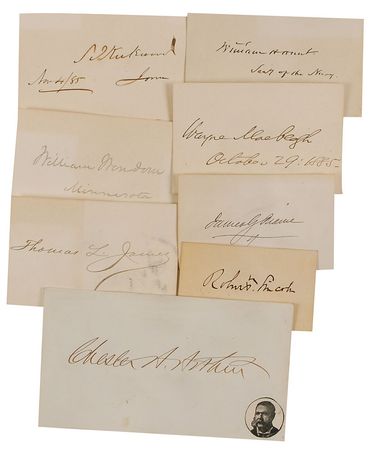 S J Kirkwood
Nov 4/85 Iowa
William H Hunt
Secy of the Navy.
William Windom
Minnesota
Wayne MacVeagh
October 29: 1885.
Thomas L. James
James G Blaine
Robert T. Lincoln
Chester A. Arthur